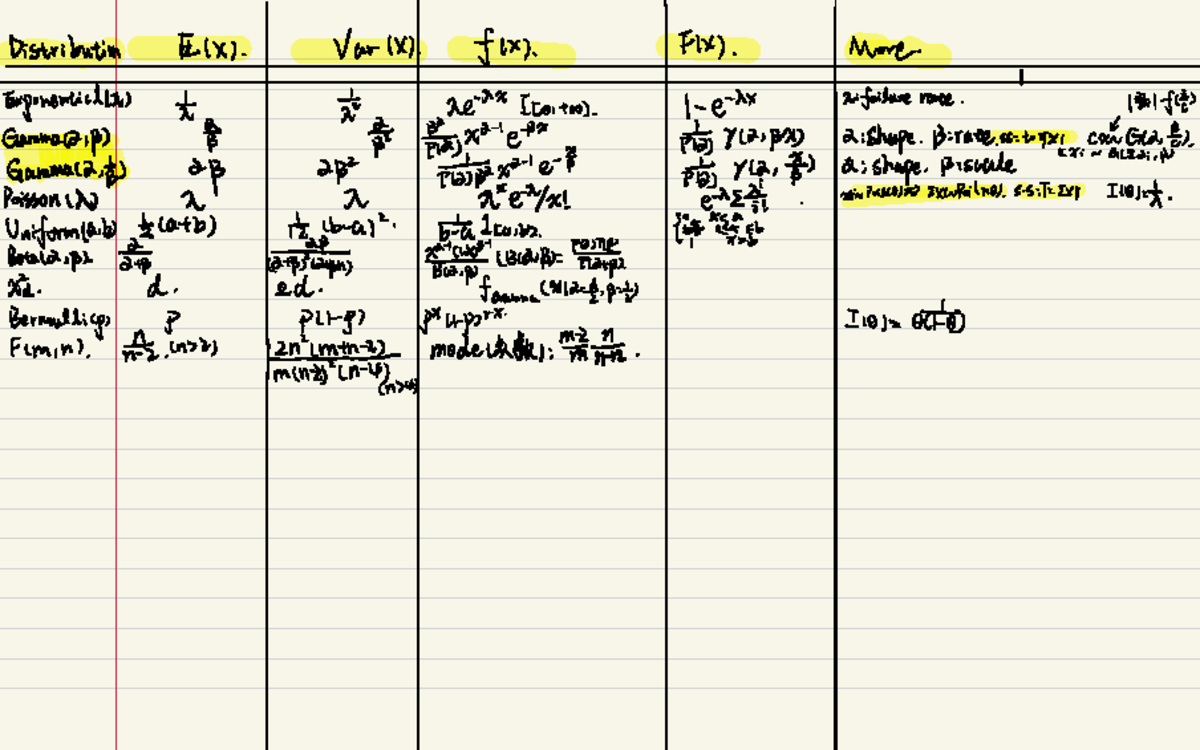 Distribution E(X). Var(X). f(x). F(x). More
Exponential(λ) 1/λ 1/λ² λe^{-λx} 1[0,+∞). 1-e^{-λx} λ: failure
Gamma(α,β) α/β α/β² β^α/Γ(α) x^{α-1} e^{-βx} 1/Γ(α) γ(α,βx) α:shape. β:rate
Gamma(α,1/β) αβ αβ² 1/(Γ(α)β^α) x^{α-1} e^{-x/β} 1/Γ(α) γ(α,x/β) α: shape. β:scale
Poisson(λ) λ λ λ^x e^{-λ}/x! e^{-λ}Σ λ^i/i! I(θ)=1/λ.
Uniform(a,b) 1/2(a+b) 1/12(b-a)². 1/(b-a) 1[a,b].
Beta(α,β). α/(α+β)
χ²d. d. 2d. f gamma
Bernoulli(p) p p(1-p) p^x(1-p)^{1-x}. I(θ)=1/(θ(1-θ))
F(m,n). n/(n-2) .(n>2) 2n²(m+n-2)/(m(n-2)²(n-4)) (n>4) mode(众数): (m-2)/m n/(n+2).